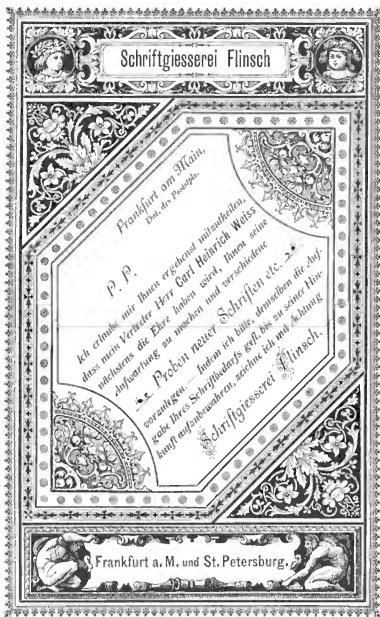 Schriftgiesserei Flinsch
Frankfurt am Main,
Dat. der Postsph.
P. P.
Ich erlaube mir Ihnen ergebenst mitzutheilen,
dass mein Vertreter Herr Carl Heinrich Weiss
nächstens die Ehre haben wird, Ihnen seine
Aufwartung zu machen und verschiedene
Proben neuer Schriften etc.
vorzulegen. — Indem ich bitte, demselben die Auf-
gabe Ihres Schriftbedarfs gefl. bis zu seiner Hin-
kunft aufzubewahren, zeichne ich mit Achtung
Schriftgiesserei Flinsch.
Frankfurt a. M. und St. Petersburg.